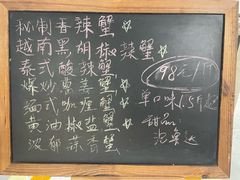 秘制香辣蟹☆
越南黑胡椒辣蟹
泰式酸辣蟹☆
爆炒姜葱蟹☆
缅式咖喱蟹☆
黄油椒盐蟹☆
浓郁蒜香蟹
198元/1斤
单口味1.5斤起
甜品:
泡鲁达